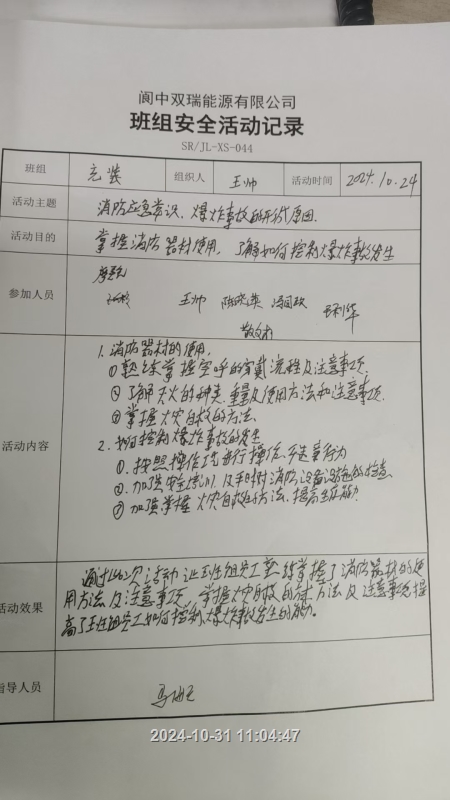 阆中双瑞能源有限公司
班组安全活动记录
SR/JL-XS-044
班组 充装 组织人 王帅 活动时间 2024.10.24
活动主题 消防应急常识、爆炸事故的形成原因.
活动目的 掌握消防器材使用,了解如何控制爆炸事故发生
参加人员
王帅
活动内容
1.消防器材的使用.
①熟练掌握空呼的穿戴流程及注意事项.
②了解灭火的种类、重量及使用方法和注意事项.
③掌握火灾自救的方法.
2.如何控制爆炸事故的发生
①.按照操作规 进行操作,不违章行为
②.加强安全培训以及平时对消防设备设施的检查
③加强掌握火灾自救的方法,提高 能力
活动效果
通过此次活动让班组员工熟练掌握了消防器材的使
用方法及注意事项、掌握火灾自救的 方法及注意事项提
高了班组员工如何控制爆炸事故发生的能力。
指导人员
2024-10-31 11:04:47